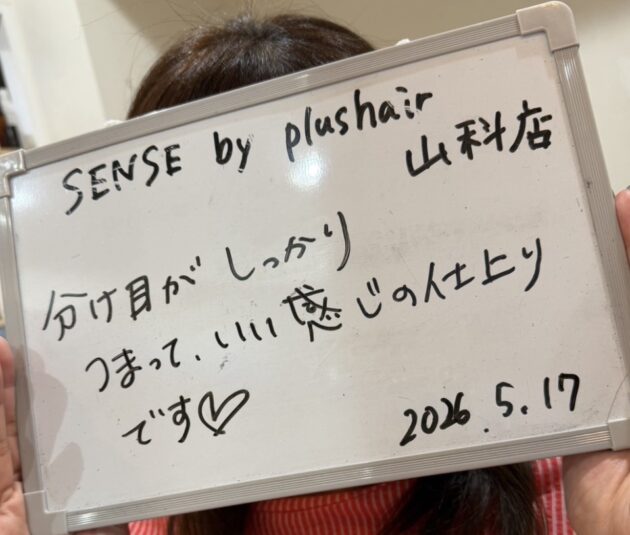 SENSE by plushair
山科店
分け目がしっかり
つまって、いい感じの仕上り
です♡
2026.5.17